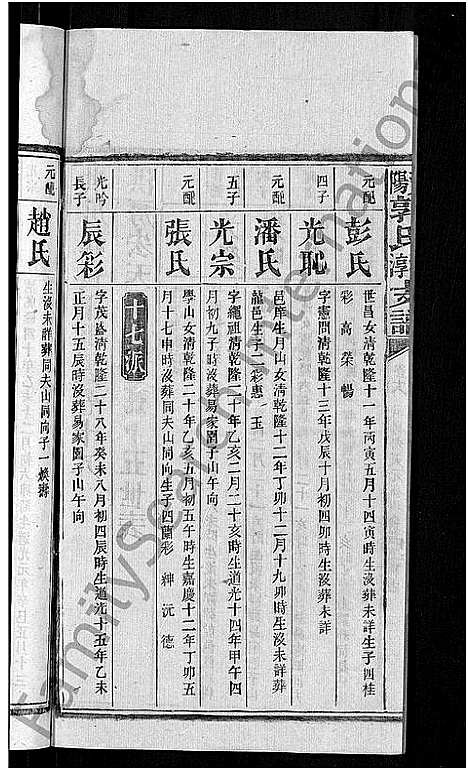 陽郭氏淳支譜
元配 彭氏 世昌女清乾隆十一年丙寅五月十四寅時生沒葬未詳生子四桂
彩 高 榮 暢
四子 光恥 字憲問清乾隆十三年戊辰十月初四卯時生沒葬未詳
元配 潘氏 邑庠生月山女清乾隆十二年丁卯十二月十九卯時生沒未詳葬
龍邑生子二彩惠 玉
五子 光宗 字繩祖清乾隆二十年乙亥二月二十亥時生道光十四年甲午四
月初九子時沒葬易家園子山午向
元配 張氏 學山女清乾隆二十年乙亥五月初五午時生嘉慶十二年丁卯五
月十七申時沒葬同夫山同向生子四蘭彩 紳 沅 德
十七派
光吟長子 辰彩 字茂盛清乾隆二十八年癸未八月初四辰時生道光十五年乙未
正月十五辰時沒葬易家園子山午向
元配 趙氏 生沒未詳葬同夫山同向子一煥壽
FamilySearch International